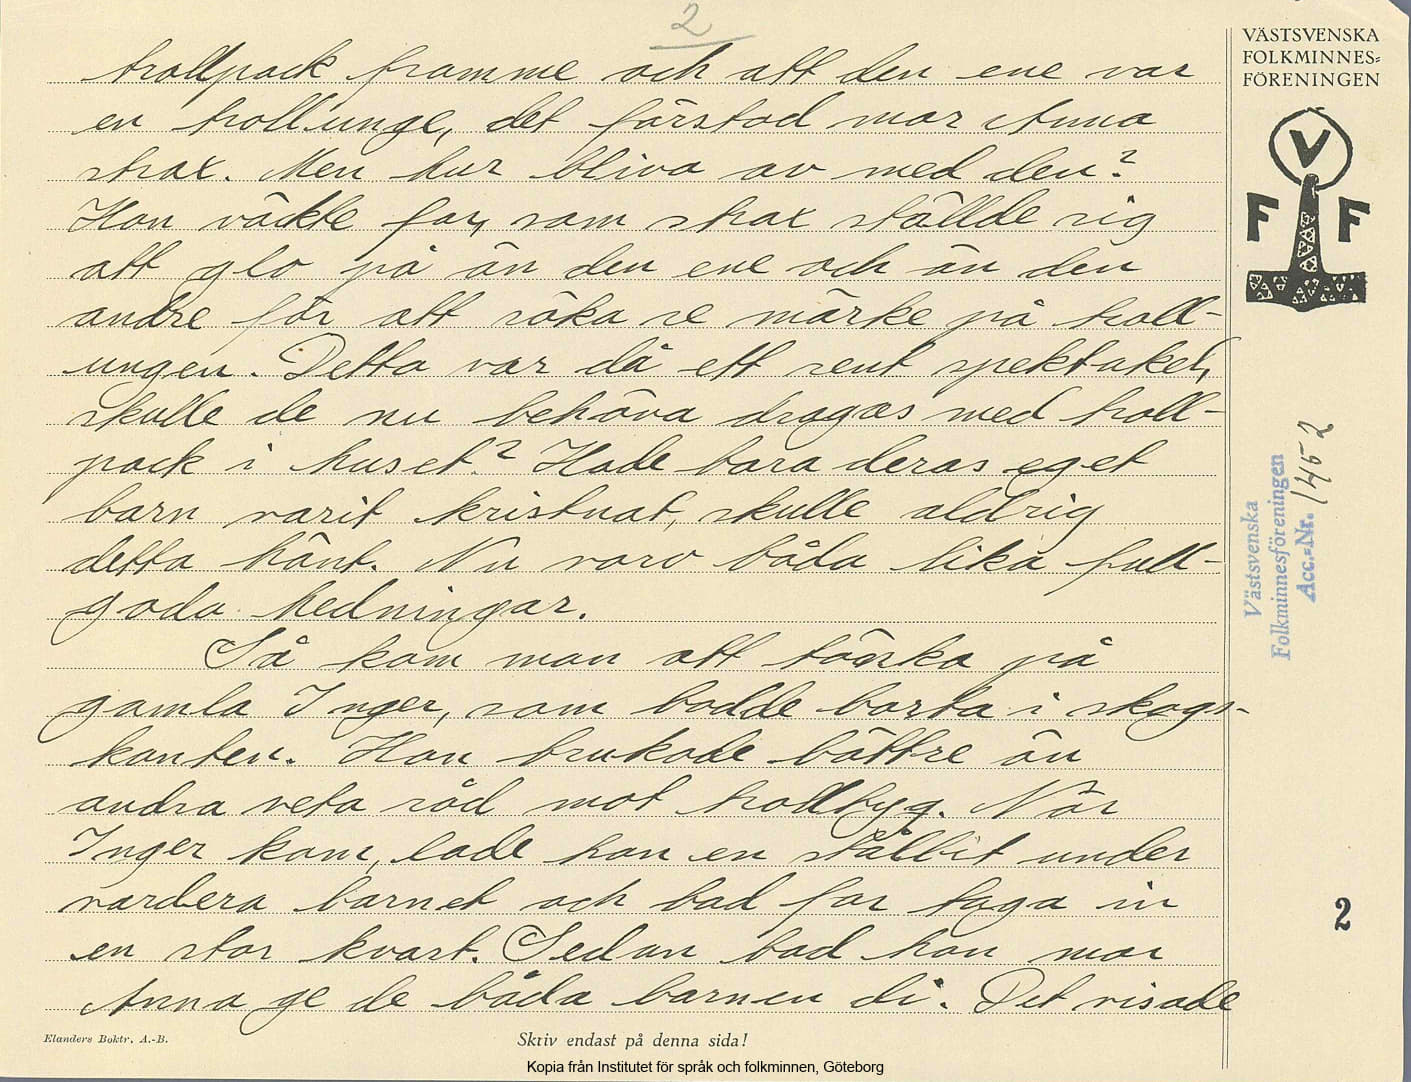 2
trollpack framme och att den ene var
en trollunge, det förstod mor Anna
strax. Men hur bliva av med den?
Hon väckte far, som strax ställde sig
att glo på än den ene och än den
andre för att söka se märke på troll-
ungen. Detta var då ett rent spektakel,
skulle de nu behöva dragas med troll-
pack i huset? Hade bara deras eget
barn varit kristnat, skulle aldrig
detta hänt. Nu voro båda lika full-
goda hedningar.
Så kom man att tänka på
gamla Inger, som bodde borta i skogs-
kanten. Hon brukade bättre än
andra veta råd mot trolltyg. När
Inger kom, lade hon en stålbit under
vardera barnet och bad far taga in
en stor kvast. Sedan bad hon mor
Anna ge de båda barnen di. Det visade
VÄSTSVENSKA
FOLKMINNES=
FÖRENINGEN
V
F F
Västsvenska
Folkminnesföreningen
Acc.=Nr. 1452
2
Elanders Boktr. A.-B.
Skriv endast på denna sida!
Kopia från Institutet för språk och folkminnen, Göteborg